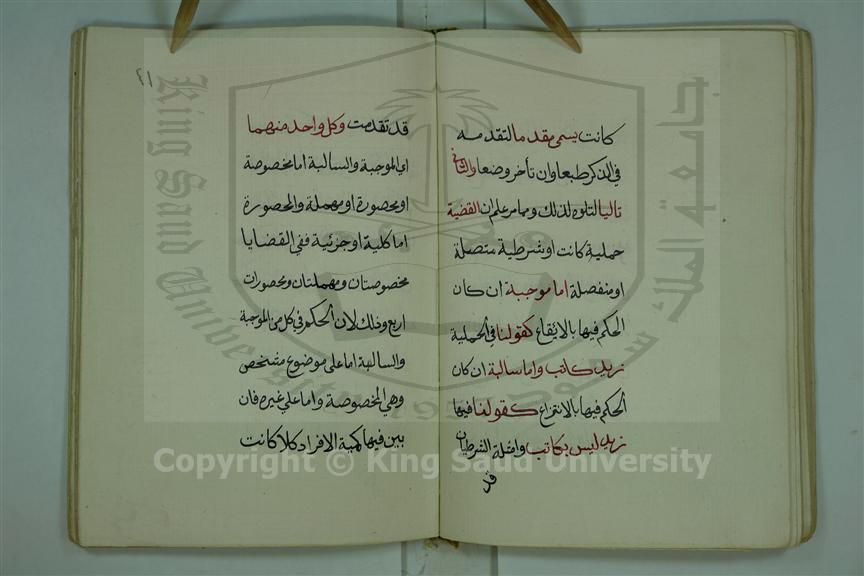 كانت يسمى مقدما لتقدمه
في الذكر طبعا وان تأخر وضعا والثاني
تاليا لتلوه لذلك ومما مر علم ان القضية
حملية كانت او شرطية متصلة
او منفصلة اما موجبة ان كان
الحكم فيها بالايقاع كقولنا في الحملية
زيد كاتب واما سالبة ان كان
الحكم فيها بالانتزاع كقولنا فيها
زيد ليس بكاتب وامثلة الشرطيات
قد
٤١
قد تقدمت وكل واحد منهما
اي الموجبة والسالبة اما مخصوصة
او محصورة او مهملة والمحصورة
اما كلية او جزئية ففي القضايا
مخصوصتان ومهملتان ومحصورات
اربع وذلك لان الحكم في كل من الموجبة
والسالبة اما على موضوع مشخص
وهي المخصوصة واما على غيره فان
بين فيها كمية الافراد كلا كانت
جامعة الملك سعود
King Saud University
Copyright © King Saud University